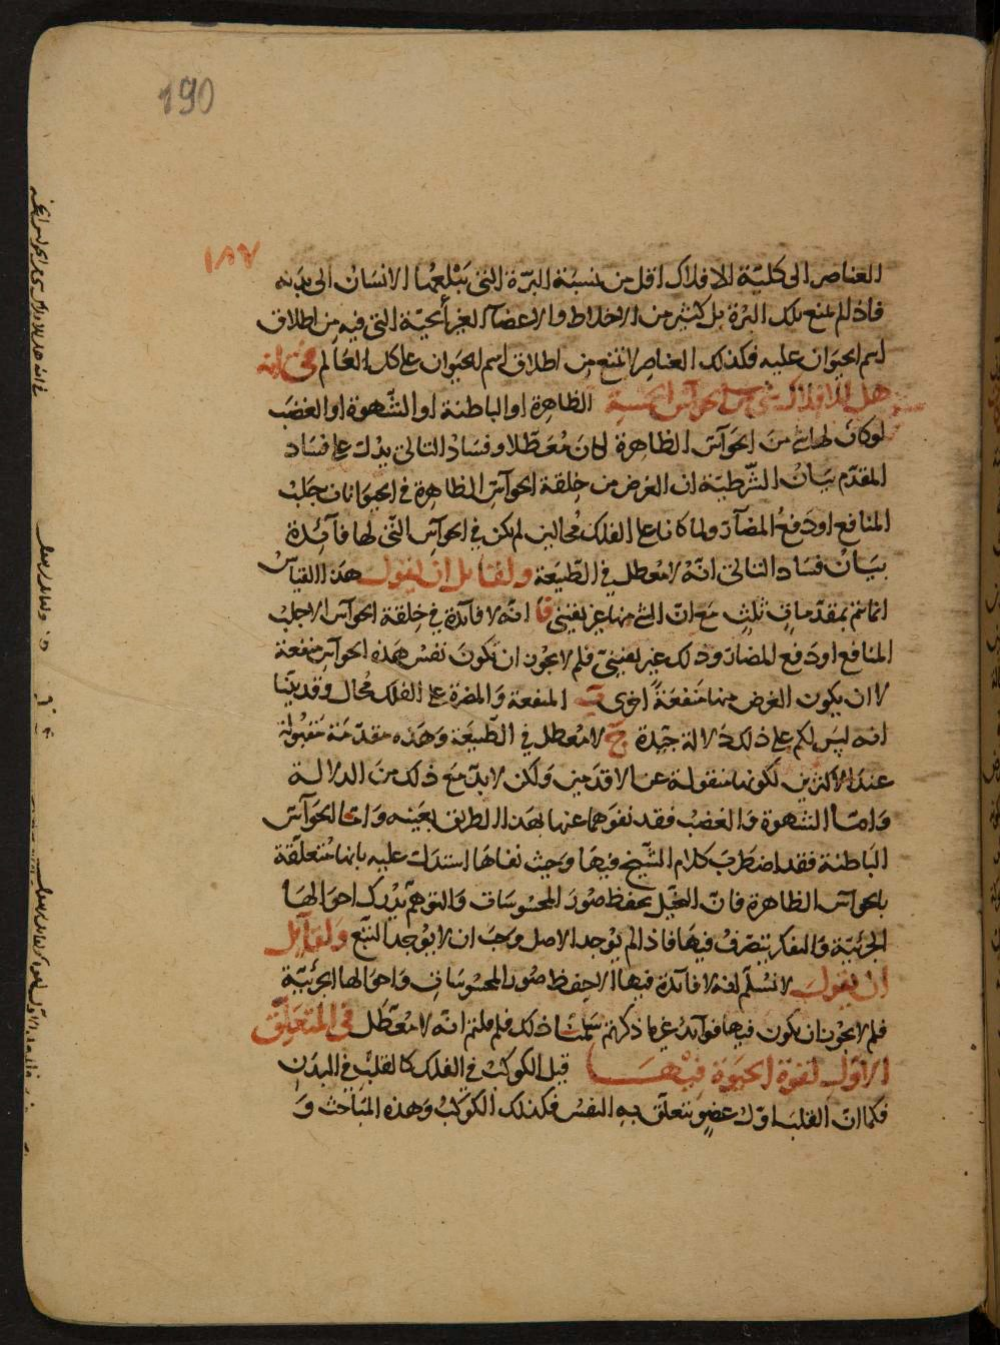 190
١٨٧
العناصر الى كلية الافلاك اقل من نسبة البرة التى يبتلعها الانسان الى بدنه
فاذا لم يمنع تلك البرة بل كثير من الاخلاط والاعضاء الغير الحية التى فيه من اطلاق
اسم الحيوان عليه فكذلك العناصر لا تمنع من اطلاق اسم الحيوان على كل العالم فى انه
هل للافلاك شئ من الحواس الخمسة الظاهرة او الباطنة او الشهوة او الغضب
لو كان لها شئ من الحواس الظاهرة لكان معطلا وفساد التالى يدل على فساد
المقدم بيان الشرطية ان الغرض من خلقة الحواس الظاهرة فى الحيوانات جلب
المنافع او دفع المضار ولما كانا على الفلك محالين لم يكن فى الحواس التى لها فائدة
بيان فساد التالى انه لا معطل فى الطبيعة ولقائل ان يقول هذا القياس
انما يتم بمقدمات ثلث مع ان الشئ منها غير يقينى آ انه لا فائدة فى خلقة الحواس الا جلب
المنافع او دفع المضار وذلك غير يقينى فلم لا يجوز ان تكون نفس هذه الحواس منفعة
لا ان يكون الغرض منها منفعة اخرى ب المنفعة والمضرة على الفلك محال وقد بينا
انه ليس لكم على ذلك دلالة جيدة ج لا معطل فى الطبيعة وهذه مقدمة مقبولة
عند الاكثرين لكونها منقولة عن الاقدمين ولكن لا بد مع ذلك من الدلالة
واما الشهوة والغضب فقد نفوهما عنها بهذا الطريق بعينه واما الحواس
الباطنة فقد اضطرب كلام الشيخ فيها وحيث نفاها استدل عليه بانها متعلقة
بالحواس الظاهرة فان التخيل يحفظ صور المحسوسات والتوهم يدرك احوالها
الجزئية والتفكر يتصرف فيها فاذا لم يوجد الاصل وجب ان لا يوجد التبع ولقائل
ان يقول لا نسلم انه لا فائدة فيها الا حفظ صور المحسوسات واحوالها الجزئية
فلم لا يجوز ان يكون فيها فوائد غير ما ذكرتم سلمنا ذلك فلم قلتم انه لا معطل فى المتعلق
الاول لقوة الحيوة فيها قيل الكوكب فى الفلك كالقلب فى البدن
فكما ان القلب اول عضو تتعلق به النفس فكذلك الكوكب وهذه المباحث و